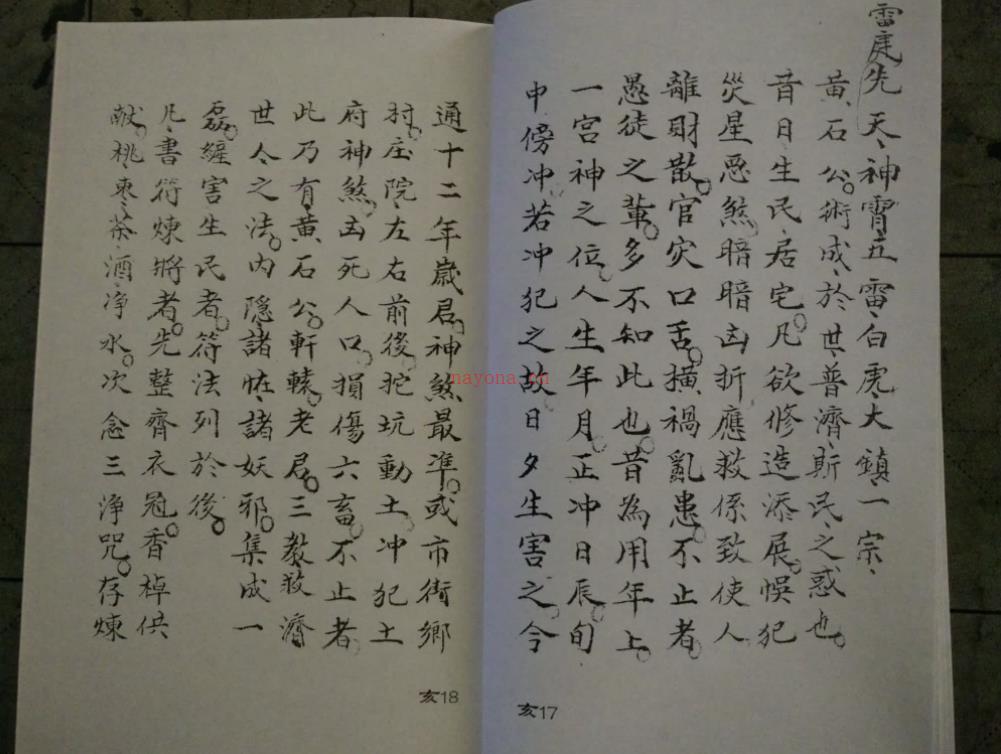 雷庭先天神霄五雷白虎大鎮一宗
黃石公術成於世普濟斯民之惑也
昔日生民居宅凡欲修造添展悮犯
災星惡煞暗暗凶折應救係致使人
離財散官灾口舌橫禍亂患不止者
愚徒之輩多不知此也昔為用年上
一宫神之位人生年月正冲日辰旬
申傍冲若冲犯之故日夕生害之今
亥17
通十二年歲君神煞最準或市街鄉
村庄院左右前後挖坑動土冲犯土
府神煞凶死人口損傷六畜不止者
此乃有黃石公軒轅老君三教救濟
世人之法内隱諸怪諸妖邪集成一
磊纏害生民者符法列於後
凡書符煉將者先整齊衣冠香棹供
献桃枣茶酒净水次念三浄咒存煉
亥18
nayona.cn